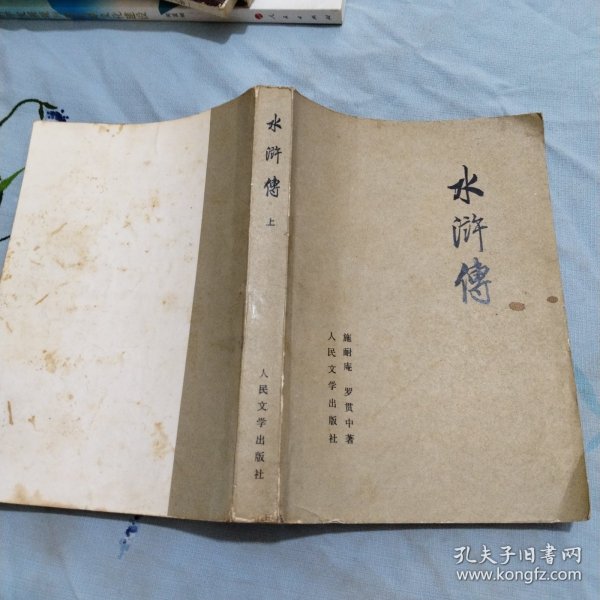 人民文学出版社
水浒傳
上
人民文学出版社
水浒傳
施耐庵 罗贯中著
人民文学出版社
孔夫子旧书网
www.kongfz.com